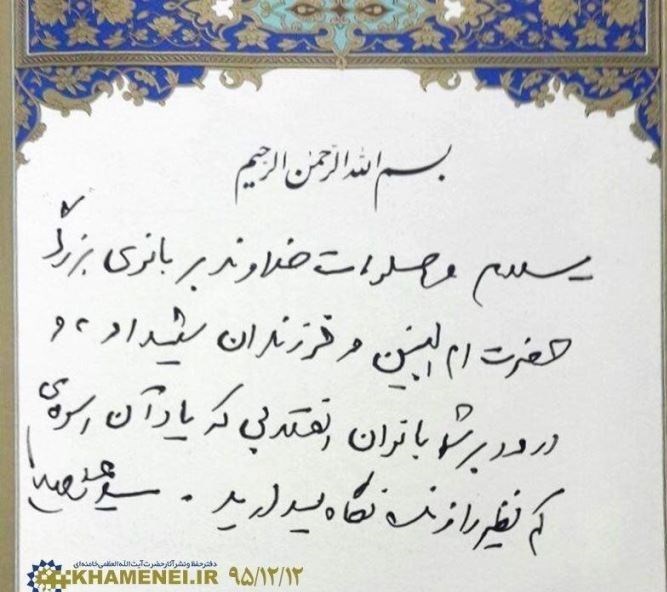 بسم الله الرحمن الرحیم
سلام و صلوات خداوند بر بانوی بزرگ
حضرت ام البنین و فرزندان شهید او ، و
درود بر شما بانوان انقلابی که یاد آن اسوه‌ی
کم نظیر را زنده نگاه میدارید . سیدعلی خامنه‌ای
دفتر حفظ و نشر آثار حضرت آیت‌الله العظمی خامنه‌ای
KHAMENEI.IR ۹۵/۱۲/۱۲